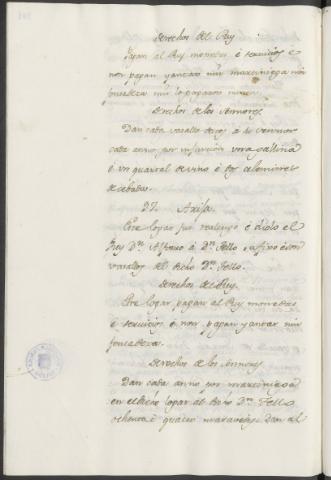 Derechos del Rey
Pagan al Rey monedas é servicios é
non pagan yantar nin martiniega nin
fonsadera nin lo pagaron nunca
Derechos de los Sennores
Dan cada vasallo dellos á so Sennor
cada anno por infurción una gallina
é un quarral de vino é dos celemines
de cebada.
27. Arija.
Este logar fue realengo é diólo el
Rey Dn. Alfonso á Dn. Tello su fijo é son
vasallos del dicho Dn. Tello.
Derechos del Rey.
Este logar pagan al Rey monedas
é servicios é non pagan yantar nin
fonsadera.
Derechos de los Sennores
Dan cada anno por martiniega
en el dicho logar al dicho Dn. Tello
ochenta é quatro maravedis. Dan al